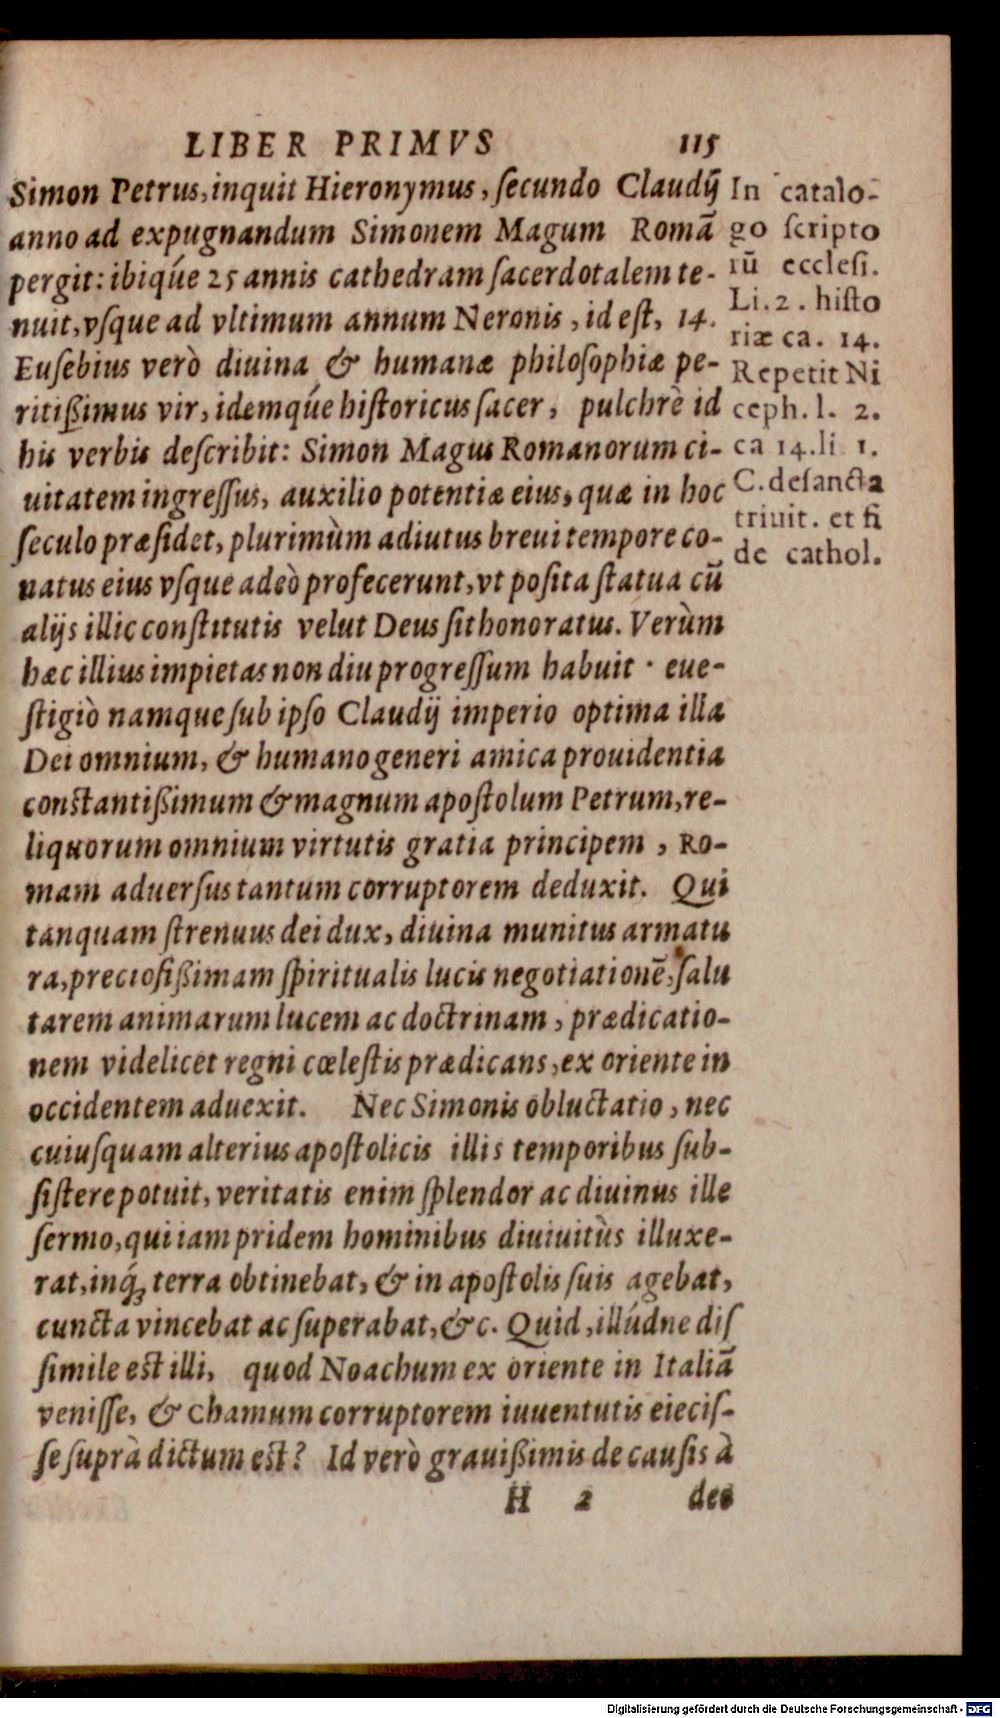 LIBER PRIMVS 115
Simon Petrus, inquit Hieronymus, ſecundo Claudij
anno ad expugnandum Simonem Magum Romā
pergit: ibiq́ue 25 annis cathedram ſacerdotalem te-
nuit, vſque ad vltimum annum Neronis, id eſt, 14.
Euſebius verò diuinæ & humanæ philoſophiæ pe-
ritißimus vir, idemq́ue hiſtoricus ſacer, pulchrè id
his verbis deſcribit: Simon Magus Romanorum ci-
uitatem ingreſſus, auxilio potentiæ eius, quæ in hoc
ſeculo præſidet, plurimùm adiutus breui tempore co-
natus eius vſque adeò profecerunt, vt poſita ſtatua cū
alijs illic conſtitutis velut Deus ſit honoratus. Verùm
hæc illius impietas non diu progreſſum habuit · eue-
ſtigiò namque ſub ipſo Claudij imperio optima illa
Dei omnium, & humano generi amica prouidentia
conſtantißimum & magnum apoſtolum Petrum, re-
liquorum omnium virtutis gratia principem, Ro-
mam aduerſus tantum corruptorem deduxit. Qui
tanquam ſtrenuus dei dux, diuina munitus armatu
ra, precioſißimam ſpiritualis lucis negotiationē, ſalu
tarem animarum lucem ac doctrinam, prædicatio-
nem videlicet regni cœleſtis prædicans, ex oriente in
occidentem aduexit. Nec Simonis obluctatio, nec
cuiuſquam alterius apoſtolicis illis temporibus ſub-
ſiſtere potuit, veritatis enim ſplendor ac diuinus ille
ſermo, qui iam pridem hominibus diuiuitùs illuxe-
rat, inq́ꝫ terra obtinebat, & in apoſtolis ſuis agebat,
cuncta vincebat ac ſuperabat, &c. Quid, illúdne diſ
ſimile eſt illi, quod Noachum ex oriente in Italiā
veniſſe, & Chamum corruptorem iuuentutis eieciſ-
ſe ſuprà dictum eſt? Id verò grauißimis de cauſis à
H 2 deo
In catalo-
go ſcripto
rū eccleſi.
Li. 2. hiſto
riæ ca. 14.
Repetit Ni
ceph. l. 2.
ca 14. li 1.
C. de ſancta
triuit. et fi
de cathol.
Digitalisierung gefördert durch die Deutsche Forschungsgemeinschaft - DFG